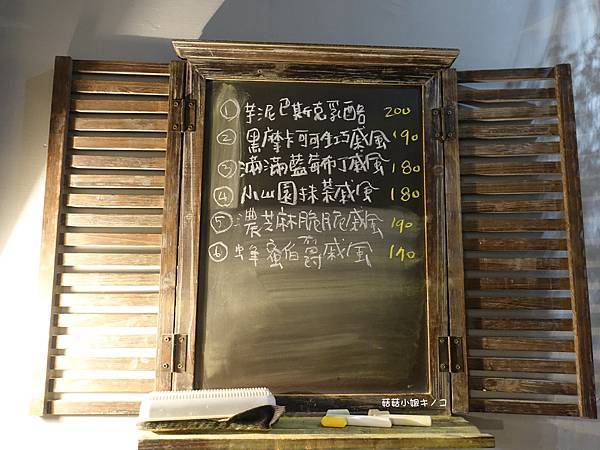 ① 芋泥巴斯克乳酪 200
② 黑摩卡可可生巧戚風 190
③ 滿滿藍莓布丁戚風 180
④ 小山園抹茶戚風 180
⑤ 濃芝麻脆脆戚風 190
⑥ 蜂蜜伯爵戚風 170
菇菇小姐キノコ